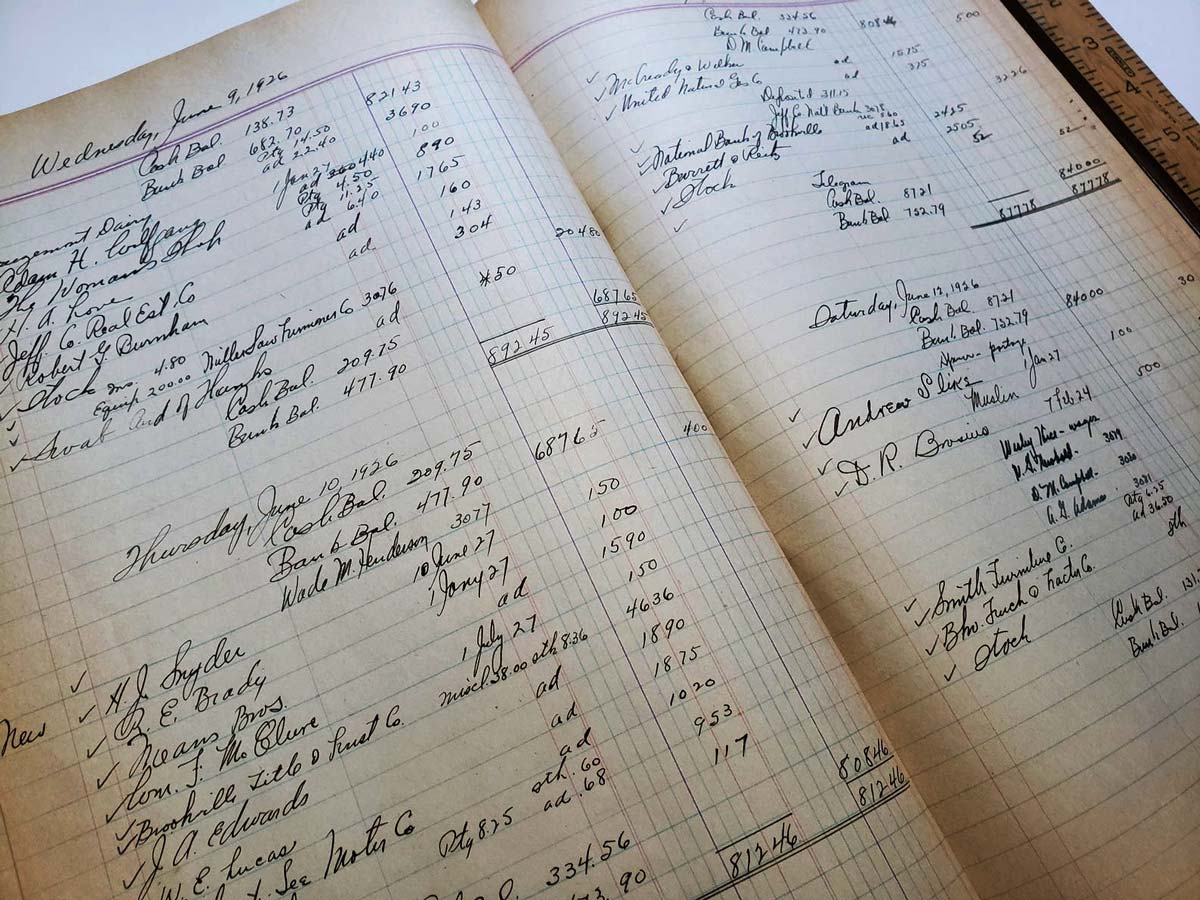 Wednesday, June 9, 1926
Cash Bal. 138.73 82143
Bank Bal 682.70 3690
Ptg 14.50
ad 22.40
Dairy 1 Jan 27 100
Adam H. Wolfgang ad 4.40 Ptg 4.50 890
The Womans Shop Ptg 11.25 ad 6.40 1765
H. A. Love ad 160
Jeff. Co. Real Est. Co ad 143
Robert G. Burnham 304 20480
Stock ins. 4.80
Equip 200.00 Miller Saw Trimmer Co 3076
ad *50
Cash Bal. 209.75 68765
Bank Bal. 477.90 89245 89245
Thursday, June 10, 1926
Cash Bal. 209.75
Bank Bal. 477.90 68765
Wade M. Henderson 3077 400
H. J. Snyder 10 June 27 150
R. E. Brady 1 Jany 27 100
Means Bros. ad 1590
New Wm. F. McClure 1 July 27 150
Brookville Title & Trust Co. miscl. 38.00 sth 8.36 4636
J. A. Edwards ad 1890
W. E. Lucas ad 1875
ad 1020
See Motor Co Ptg 8.25 sth .60 ad .68 953
117
334.56 80846
473.90 81246 81246
Cash Bal. 334.56
Bank Bal 473.90 80846
D M Campbell 500
McCready & Walker ad 1575
United Natural Gas Co ad 375
Deposited 311.15
Jeff Co Natl Bank 3078 3226
National Bank of Brookville 2425
Barrett & Reitz ad 18.65 2505
Stock ad 52
Telegram 52
Cash Bal. 8721
Bank Bal 752.79 84000
87778 87778
Saturday, June 12, 1926
Cash Bal. 8721
Bank Bal. 752.79 84000
postage 30
Andrew Slike 1 Jan 27 100
Muslin
D. R. Brosius 7 Feb 24 500
wages
D. M. Campbell 3020
A. G. Adams 3021
Smith Furniture Co. Ptg 6.25
Bro. Truck & Tractor Co. ad 36.50
Stock sth
Cash Bal. 131.
Bank Bal.
3
4
5